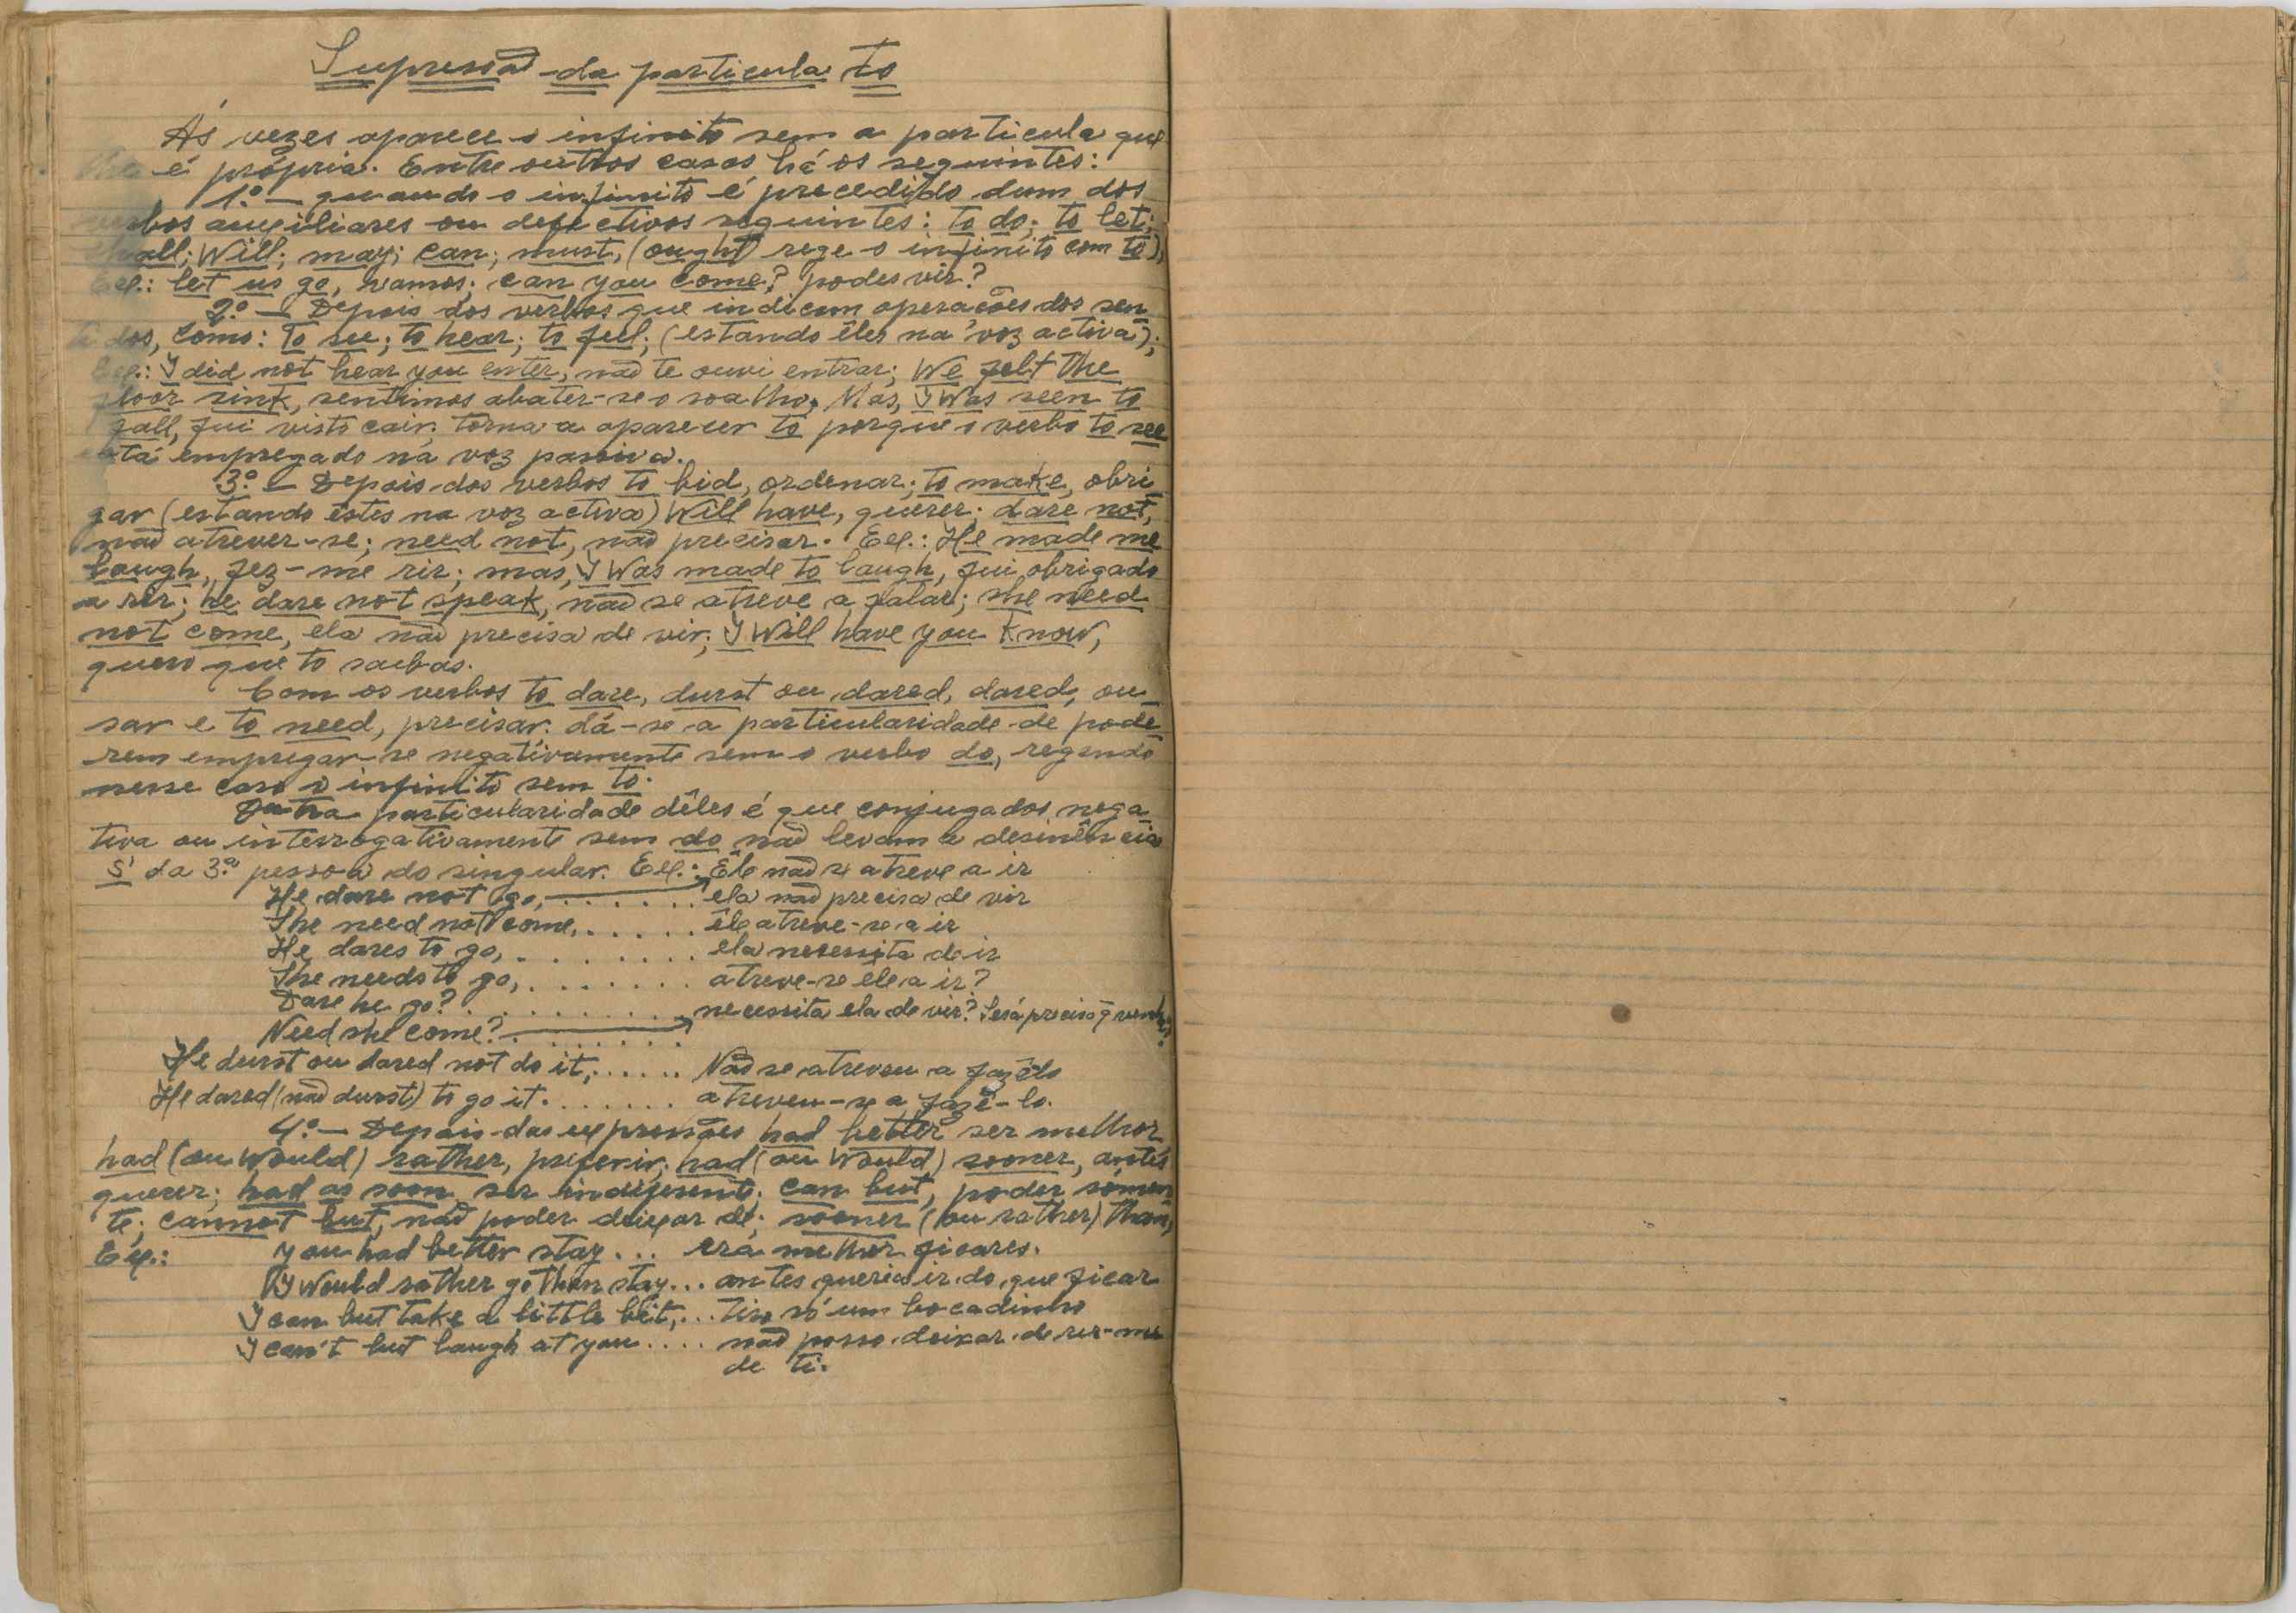 Supressão da particula to
Ás vezes aparece o infinito sem a particula que
lhe é própria. Entre outros casos há os seguintes:
1.º — quando o infinito é precedido dum dos
verbos auxiliares ou defectivos seguintes: to do; to let;
shall; Will; may; can; must, (ought rege o infinito com to);
Ex.: let us go, vamos; can you come? podes vir?
2.º — Depois dos verbos que indicam operacões dos sen
tidos, como: to see; to hear; to feel; (estando êles na voz activa);
Ex.: I did not hear you enter, não te ouvi entrar; We felt the
floor sink, sentimos abater-se o soalho. Mas, I Was seen to
fall, fui visto cair; torna a aparecer to porque o verbo to see
está empregado na voz passiva.
3.º — Depois dos verbos to bid, ordenar; to make, obri
gar (estando êstes na voz activa) Will have, querer; dare not,
não atrever-se; need not, não precisar. Ex.: He made me
laugh, fez-me rir; mas, I Was made to laugh, fui obrigado
a rir; he dare not speak, não se atreve a falar; she need
not come, ela não precisa de vir; I Will have you know,
quero que to saibas.
Com os verbos to dare, durst ou dared, dared, ou
sar e to need, precisar. dá-se a particularidade de pode
rem empregar-se negativamente sem o verbo do, regendo
nesse caso o infinito sem to.
Outra particularidade dêles é que conjugados nega
tiva ou interrogativamente sem do não levam a desinência
S da 3.ª pessoa do singular. Ex.: Êle não se atreve a ir
He dare not go, . . . . . . . ela não precisa de vir
She need not come, . . . . . êle atreve-se a ir
He dares to go, . . . . . . . . ela necessita de ir
She needs to go, . . . . . . . atreve-se ele a ir?
Dare he go? . . . . . . . . . . necessita ela de vir? Será preciso q̃ venha?
Need she come? . . . . . . .
He durst ou dared not do it, . . . . . Não se atreveu a fazêlo
He dared (não durst) to go it. . . . . . . atreveu-se a fazê-lo.
4.º — Depois das expressões had better ser melhor
had (ou Would) rather, preferir; had (ou Would) sooner, antes
querer; had as soon ser indiferente; can but, poder sómen
te; cannot but, não poder deixar de; sooner (ou rather) than,
Ex.: you had better stay ... era melhor ficares.
I Would rather go than stay ... antes queria ir do que ficar
I can but take a little beit, ... tiro só um bocadinho
I can't but laugh at you .... não posso deixar de rir-me
de ti.